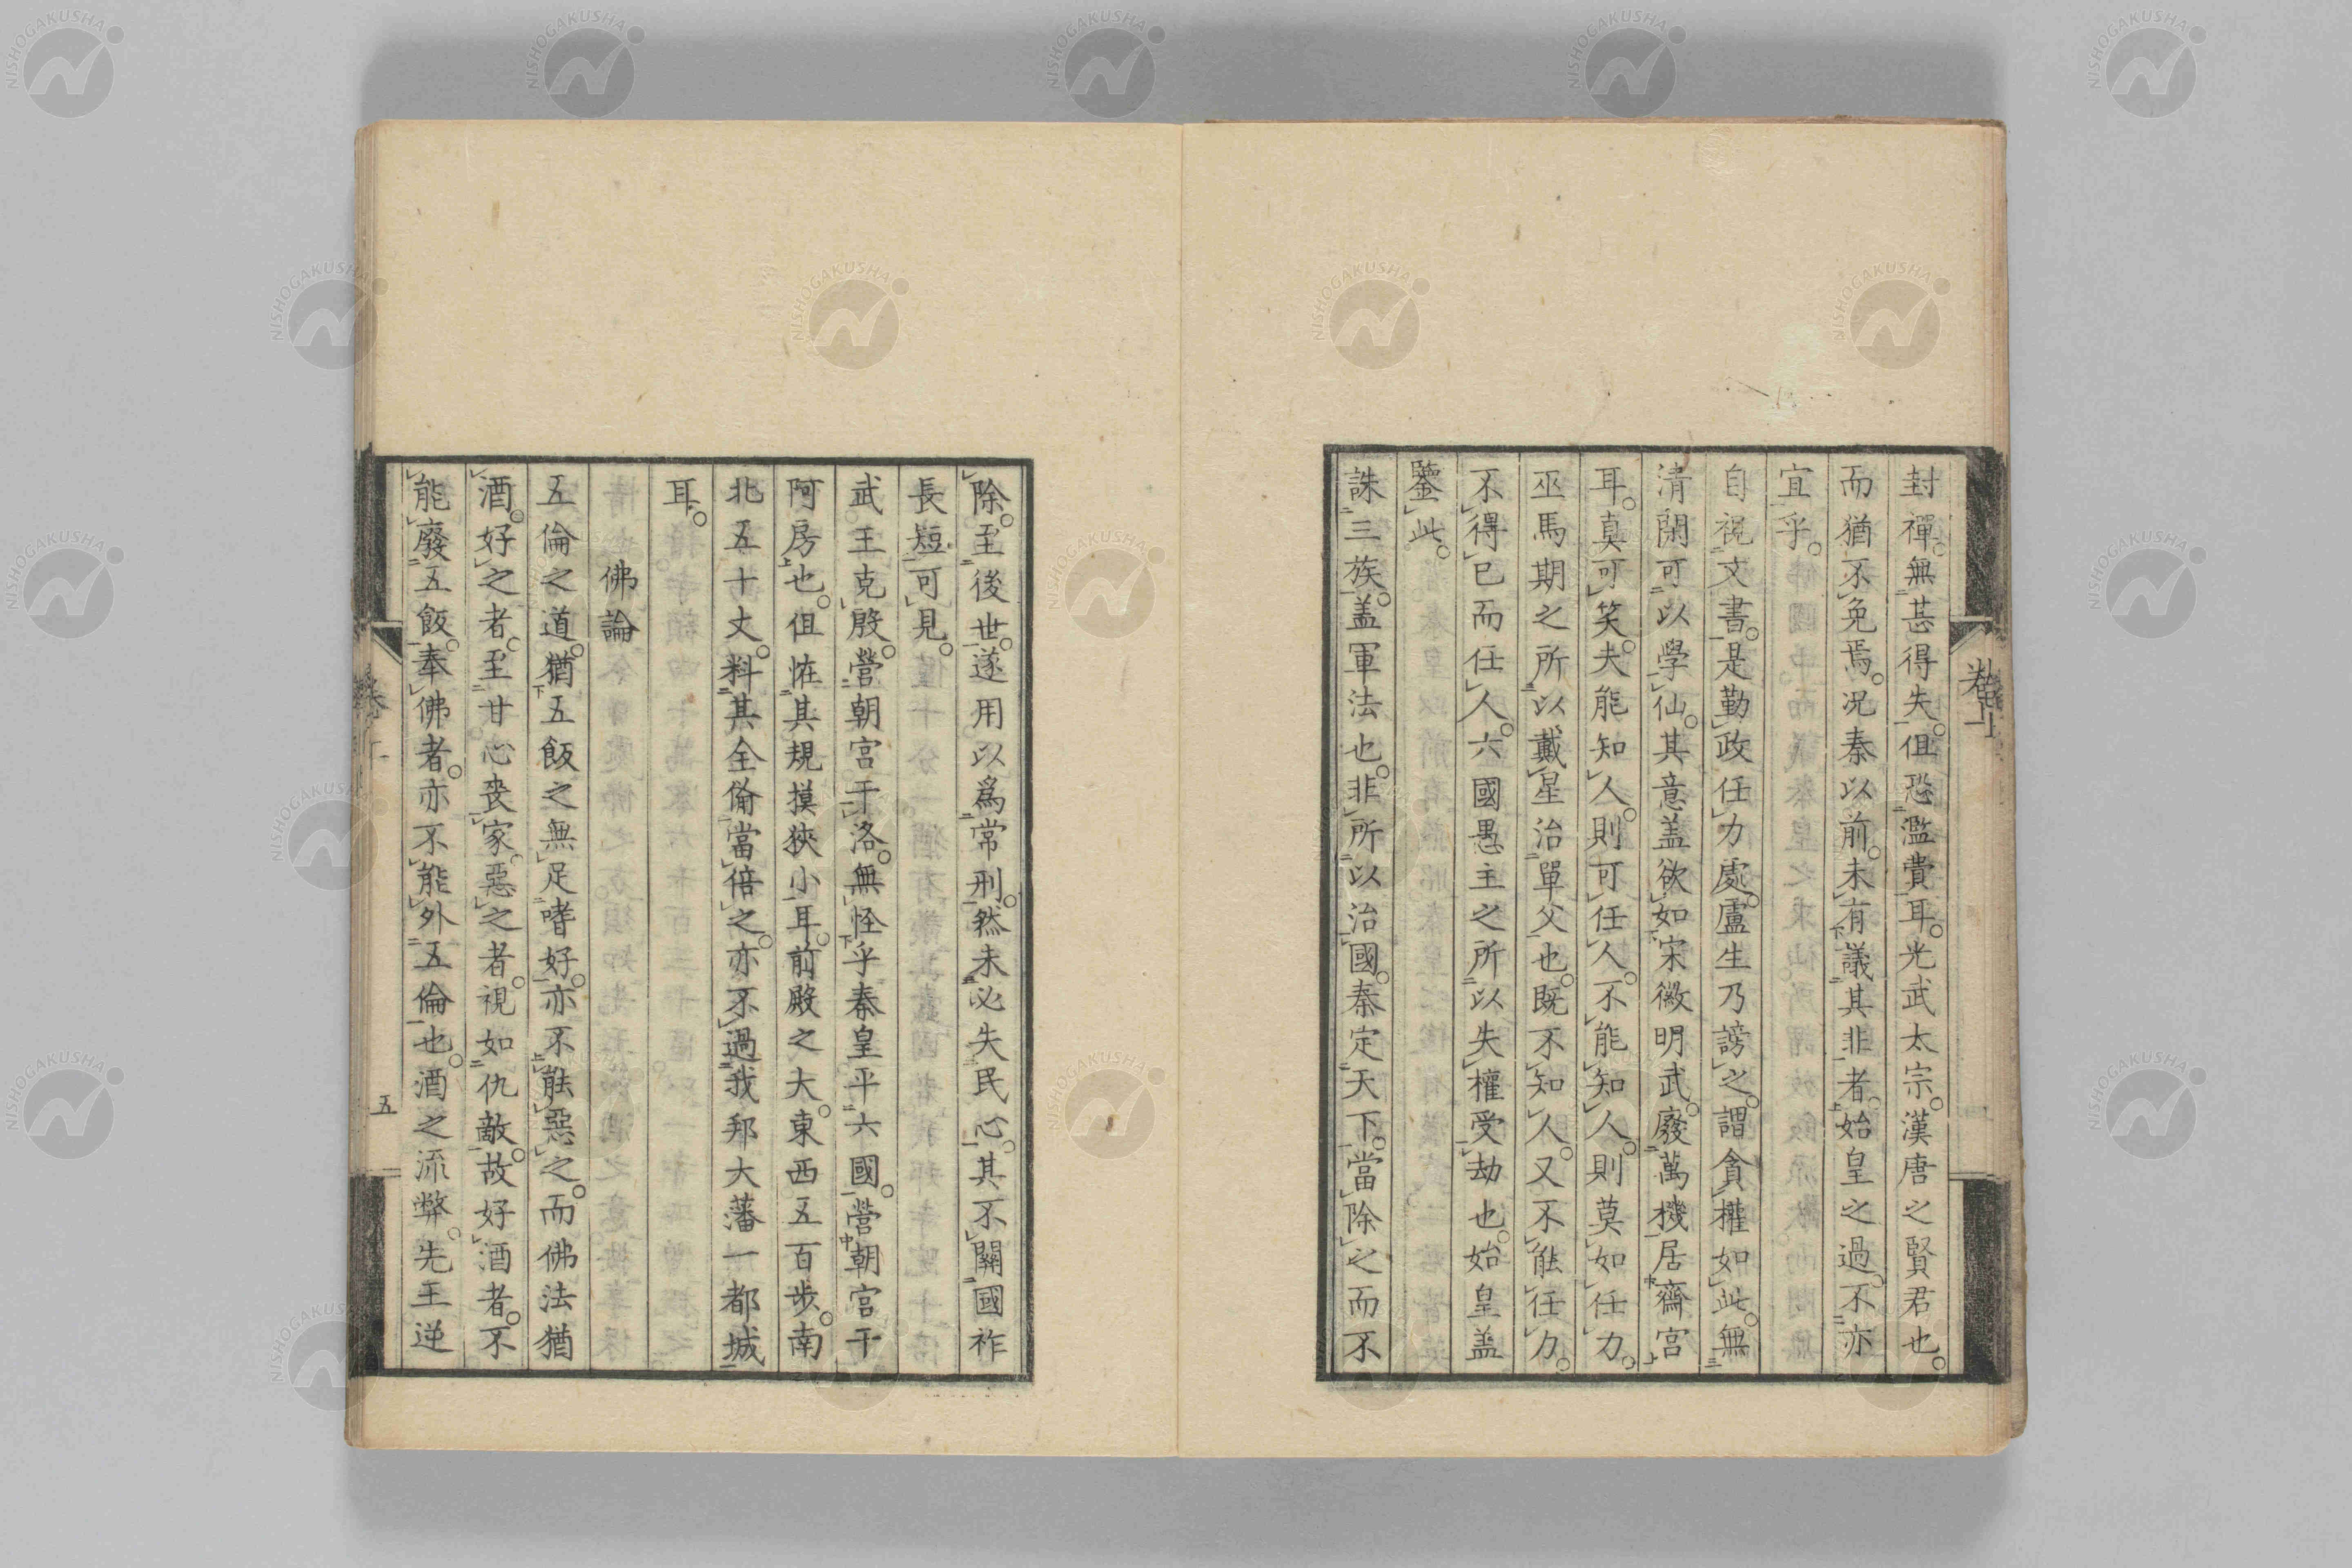 封禪無甚得失但恐濫費耳光武太宗漢唐之賢君也
而猶不免焉況秦以前未有議其非者始皇之過不亦
宜乎
自視文書是勤政任力處盧生乃謗之謂貪權如此無
清閑可以學仙其意盖欲如宋徽明武廢萬機居齋宮
耳真可笑夫能知人則可任人不能知人則莫如任力
巫馬期之所以戴星治單父也既不知人又不能任力
不得已而任人六國愚主之所以失權受劫也始皇盖
鑒此
誅三族盖軍法也非所以治國秦定天下當除之而不
除至後世遂用以爲常刑然未必失民心其不關國祚
長短可見
武王克殷營朝宮于洛無怪乎秦皇平六國營朝宮于
阿房也但恠其規摸狹小耳前殿之大東西五百步南
北五十丈料其全備當倍之亦不過我邦大藩一都城
耳
佛論
五倫之道猶五飯之無足嗜好亦不能惡之而佛法猶
酒好之者至甘心喪家惡之者視如仇敵故好酒者不
能廢五飯奉佛者亦不能外五倫也酒之流弊先王逆
五
NISHOGAKUSHA